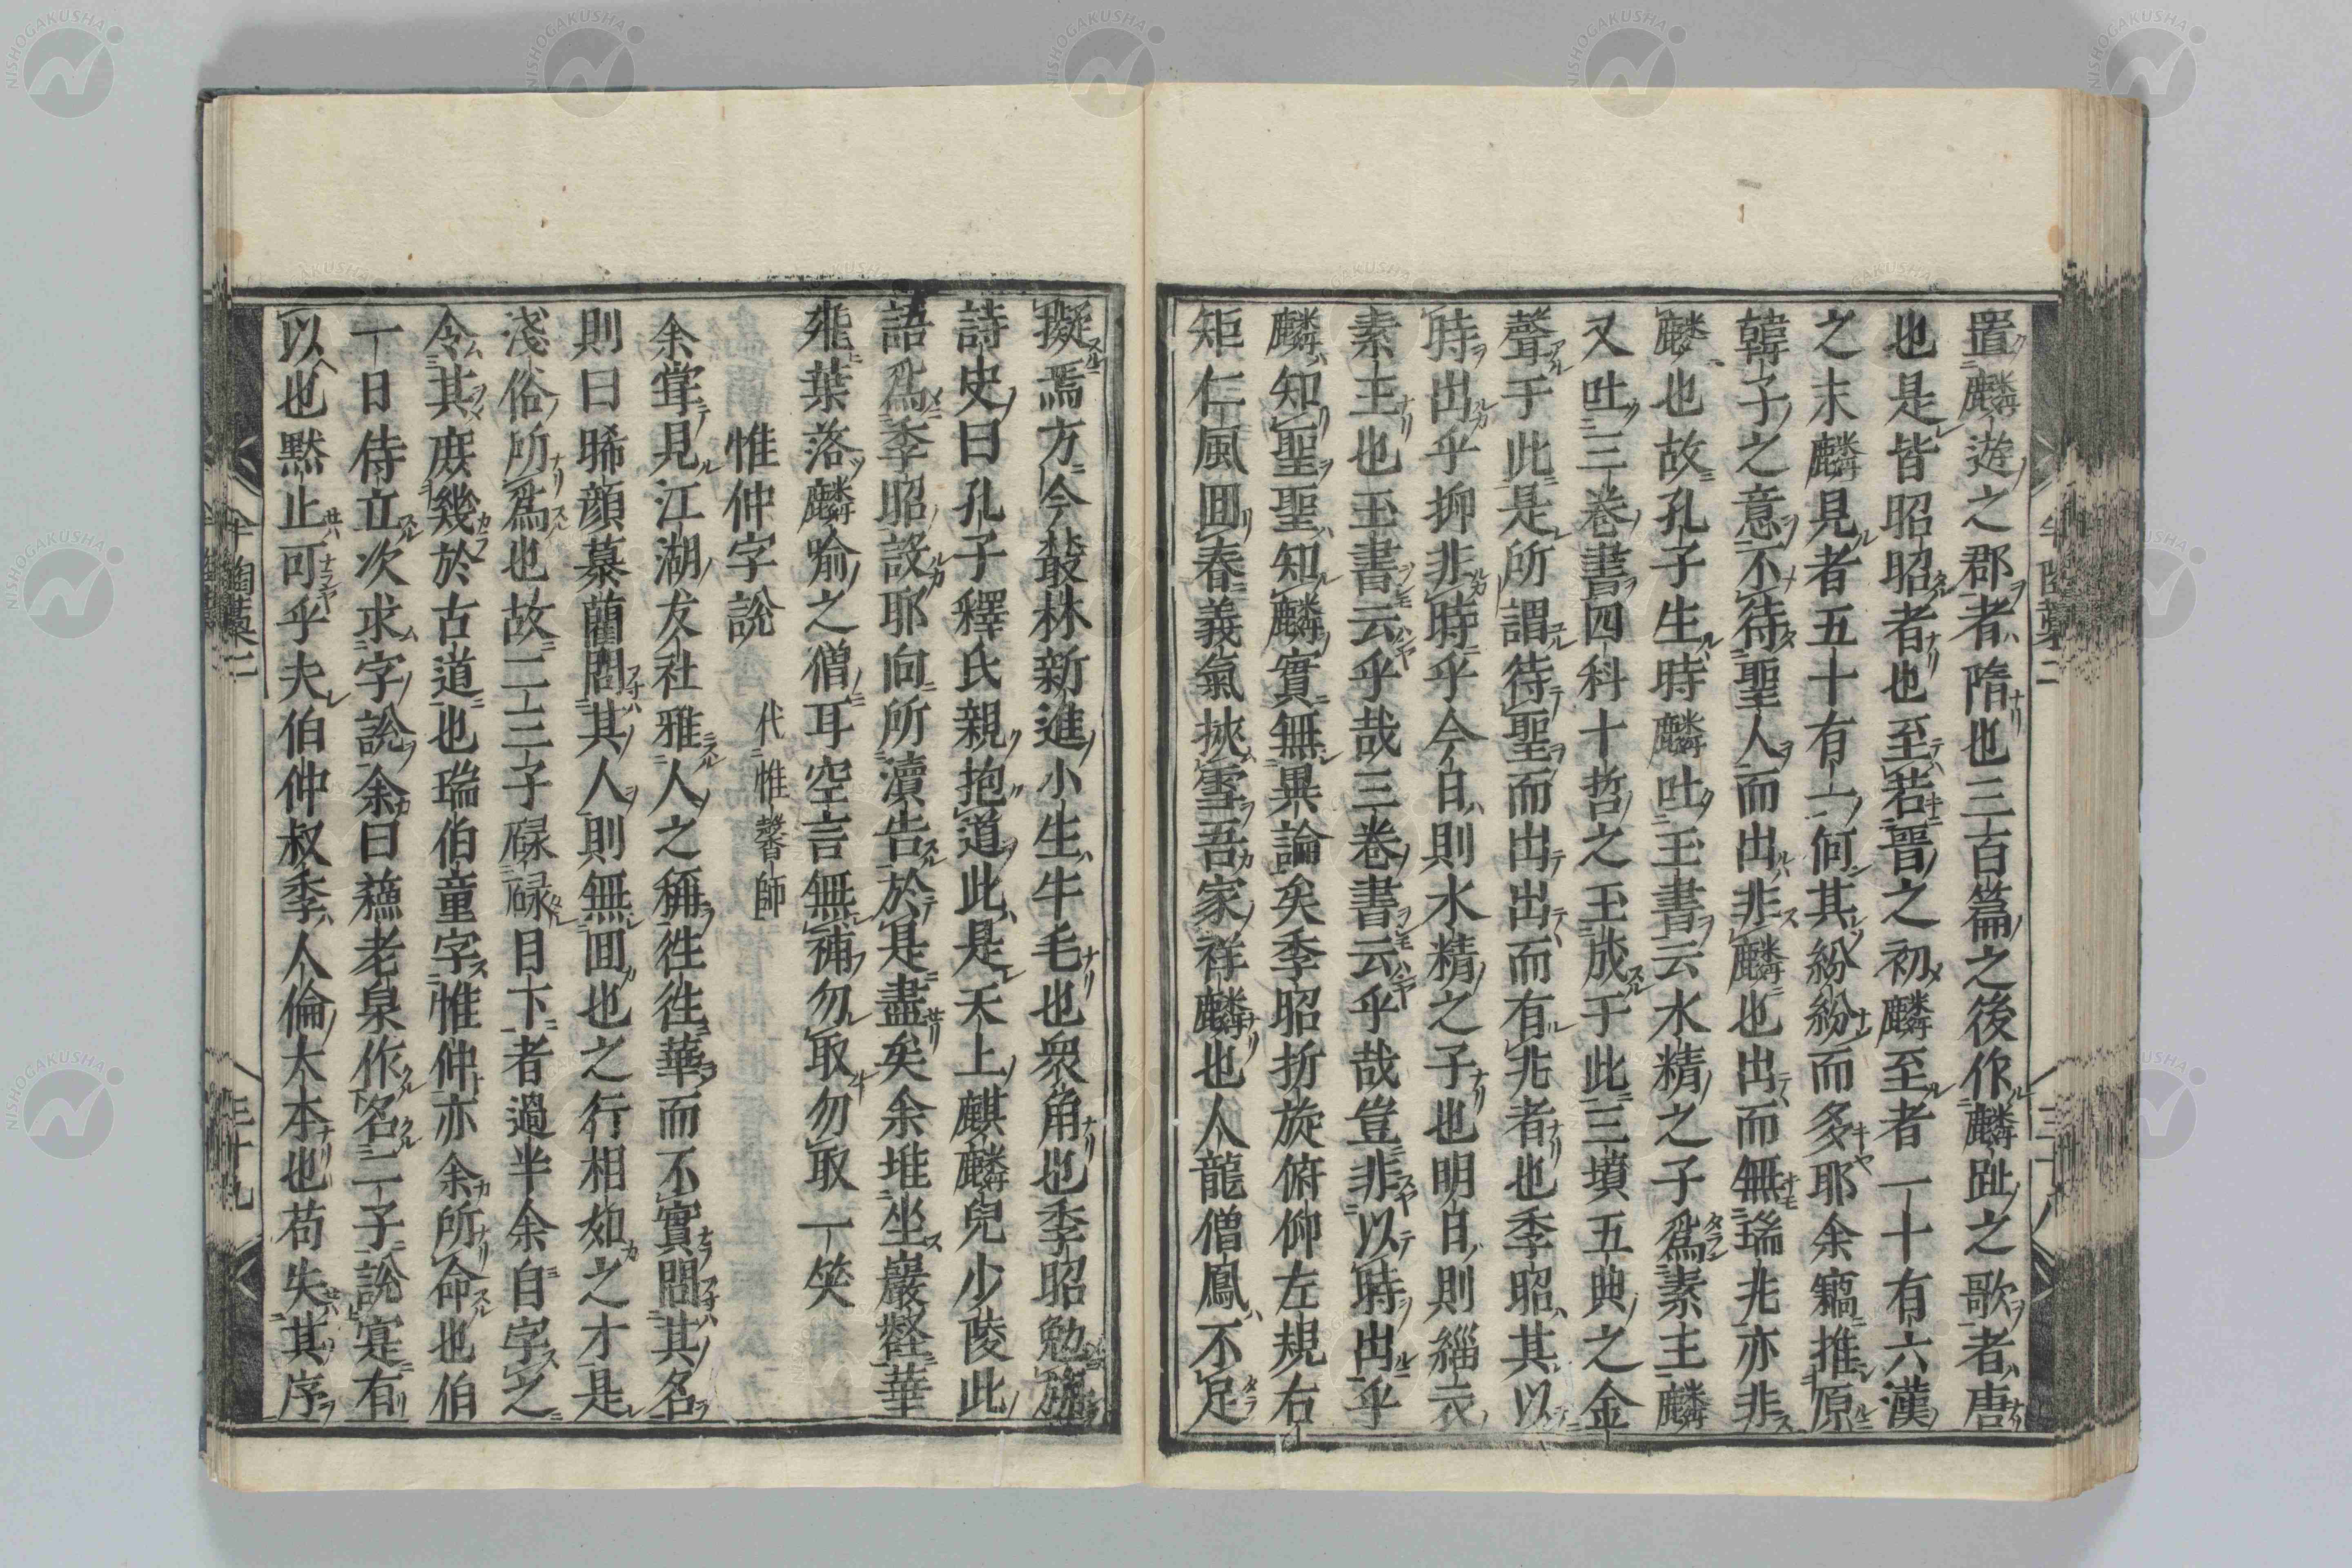 置麟遊之郡者隋也三百篇之後作麟趾之歌者唐
也是皆昭昭者也至若晋之初麟至者一十有六漢
之末麟見者五十有一何其紛紛而多耶余竊推原
韓子之意不待聖人而出非麟也出而無瑞兆亦非
麟也故孔子生時麟吐玉書云水精之子爲素王麟
又吐三卷書四科十哲之玉成于此三墳五典之金
聲于此是所謂待聖而出出而有兆者也季昭其以
時出乎抑非時乎今日則水精之子也明日則緇衣
素王也玉書云乎哉三卷書云乎哉豈非以時出乎
麟知聖聖知麟實無異論矣季昭折旋俯仰左規右
矩仁風囬春義氣挾雪吾家祥麟也人龍僧鳳不足
擬焉方今叢林新進小生牛毛也衆角也季昭勉旃
詩史曰孔子釋氏親抱道此是天上麒麟兒少陵此
語爲季昭設耶向所瀆告於是盡矣余堆坐巖壑華
飛葉落麟喻之僧耳空言無補勿取勿取一笑
惟仲字說 代惟馨師
余甞見江湖友社雅人之稱徃徃華而不實問其名
則曰睎顔慕藺問其人則無囬也之行相如之才是
淺俗所爲也故二三子碌碌目下者過半余自字之
令其庻幾於古道也瑞伯童字惟仲亦余所命也伯
一日侍立次求字說余曰蘓老泉作名二子說寔有
以也黙止可乎夫伯仲叔季人倫太本也苟失其序